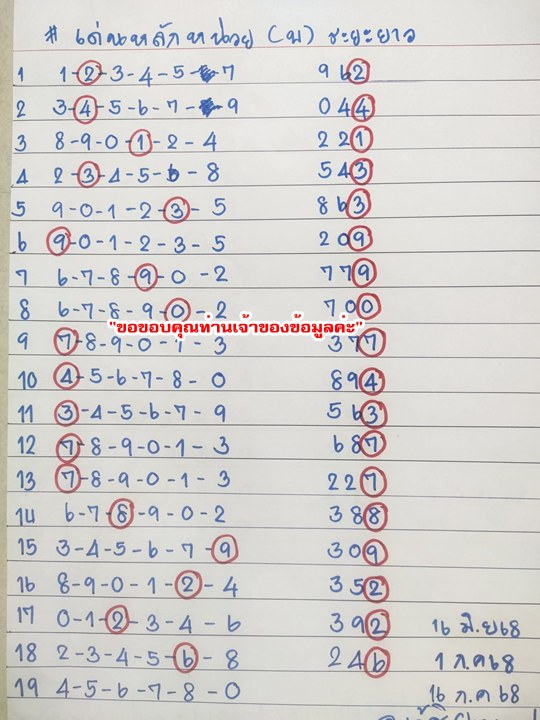 # เด่นหลักหน่วย (บ) ระยะยาว
1 1-2-3-4-5-7 962
2 3-4-5-6-7-9 044
3 8-9-0-1-2-4 221
4 2-3-4-5-6-8 543
5 9-0-1-2-3-5 863
6 9-0-1-2-3-5 209
7 6-7-8-9-0-2 779
8 6-7-8-9-0-2 700
"ขอขอบคุณท่านเจ้าของข้อมูลค่ะ"
9 7-8-9-0-1-3 377
10 4-5-6-7-8-0 894
11 3-4-5-6-7-9 563
12 7-8-9-0-1-3 687
13 7-8-9-0-1-3 227
14 6-7-8-9-0-2 388
15 3-4-5-6-7-9 309
16 8-9-0-1-2-4 352
17 0-1-2-3-4-6 392 16 มิ.ย 68
18 2-3-4-5-6-8 246 1 ก.ค 68
19 4-5-6-7-8-0 16 ก.ค 68